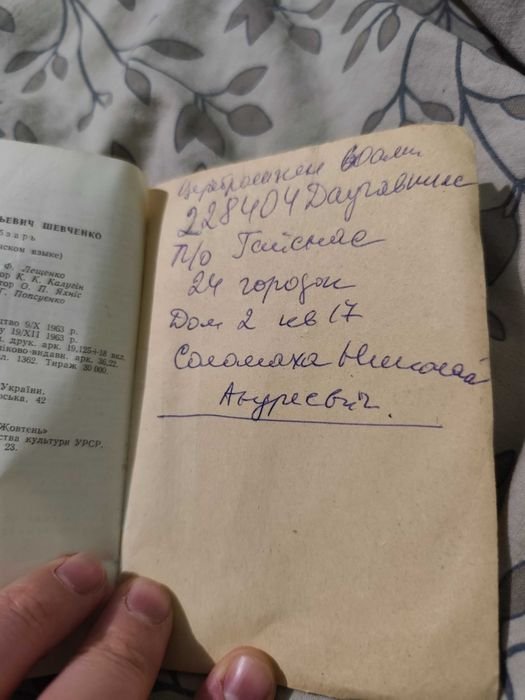 ЬЕВИЧ ШЕВЧЕНКО
бзарь
нском языке)
Ф. Лещенко
ор К. К. Калугін
тор О. П. Яхніс
Г. Попсуєнко
цтво 9/X 1963 р.
у 19/XII 1963 р.
. друк. арк. 19,125+18 вкл.
ніково-видавн. арк. 36,22.
л. 1362. Тираж 30 000.
України.
рська, 42
Жовтень»
ства культури УРСР.
23.
Церебролизин 60 амп
228404 Даугавпилс
П/о
24 городок
Дом 2 кв 17
Соломаха Николай
Андреевич.